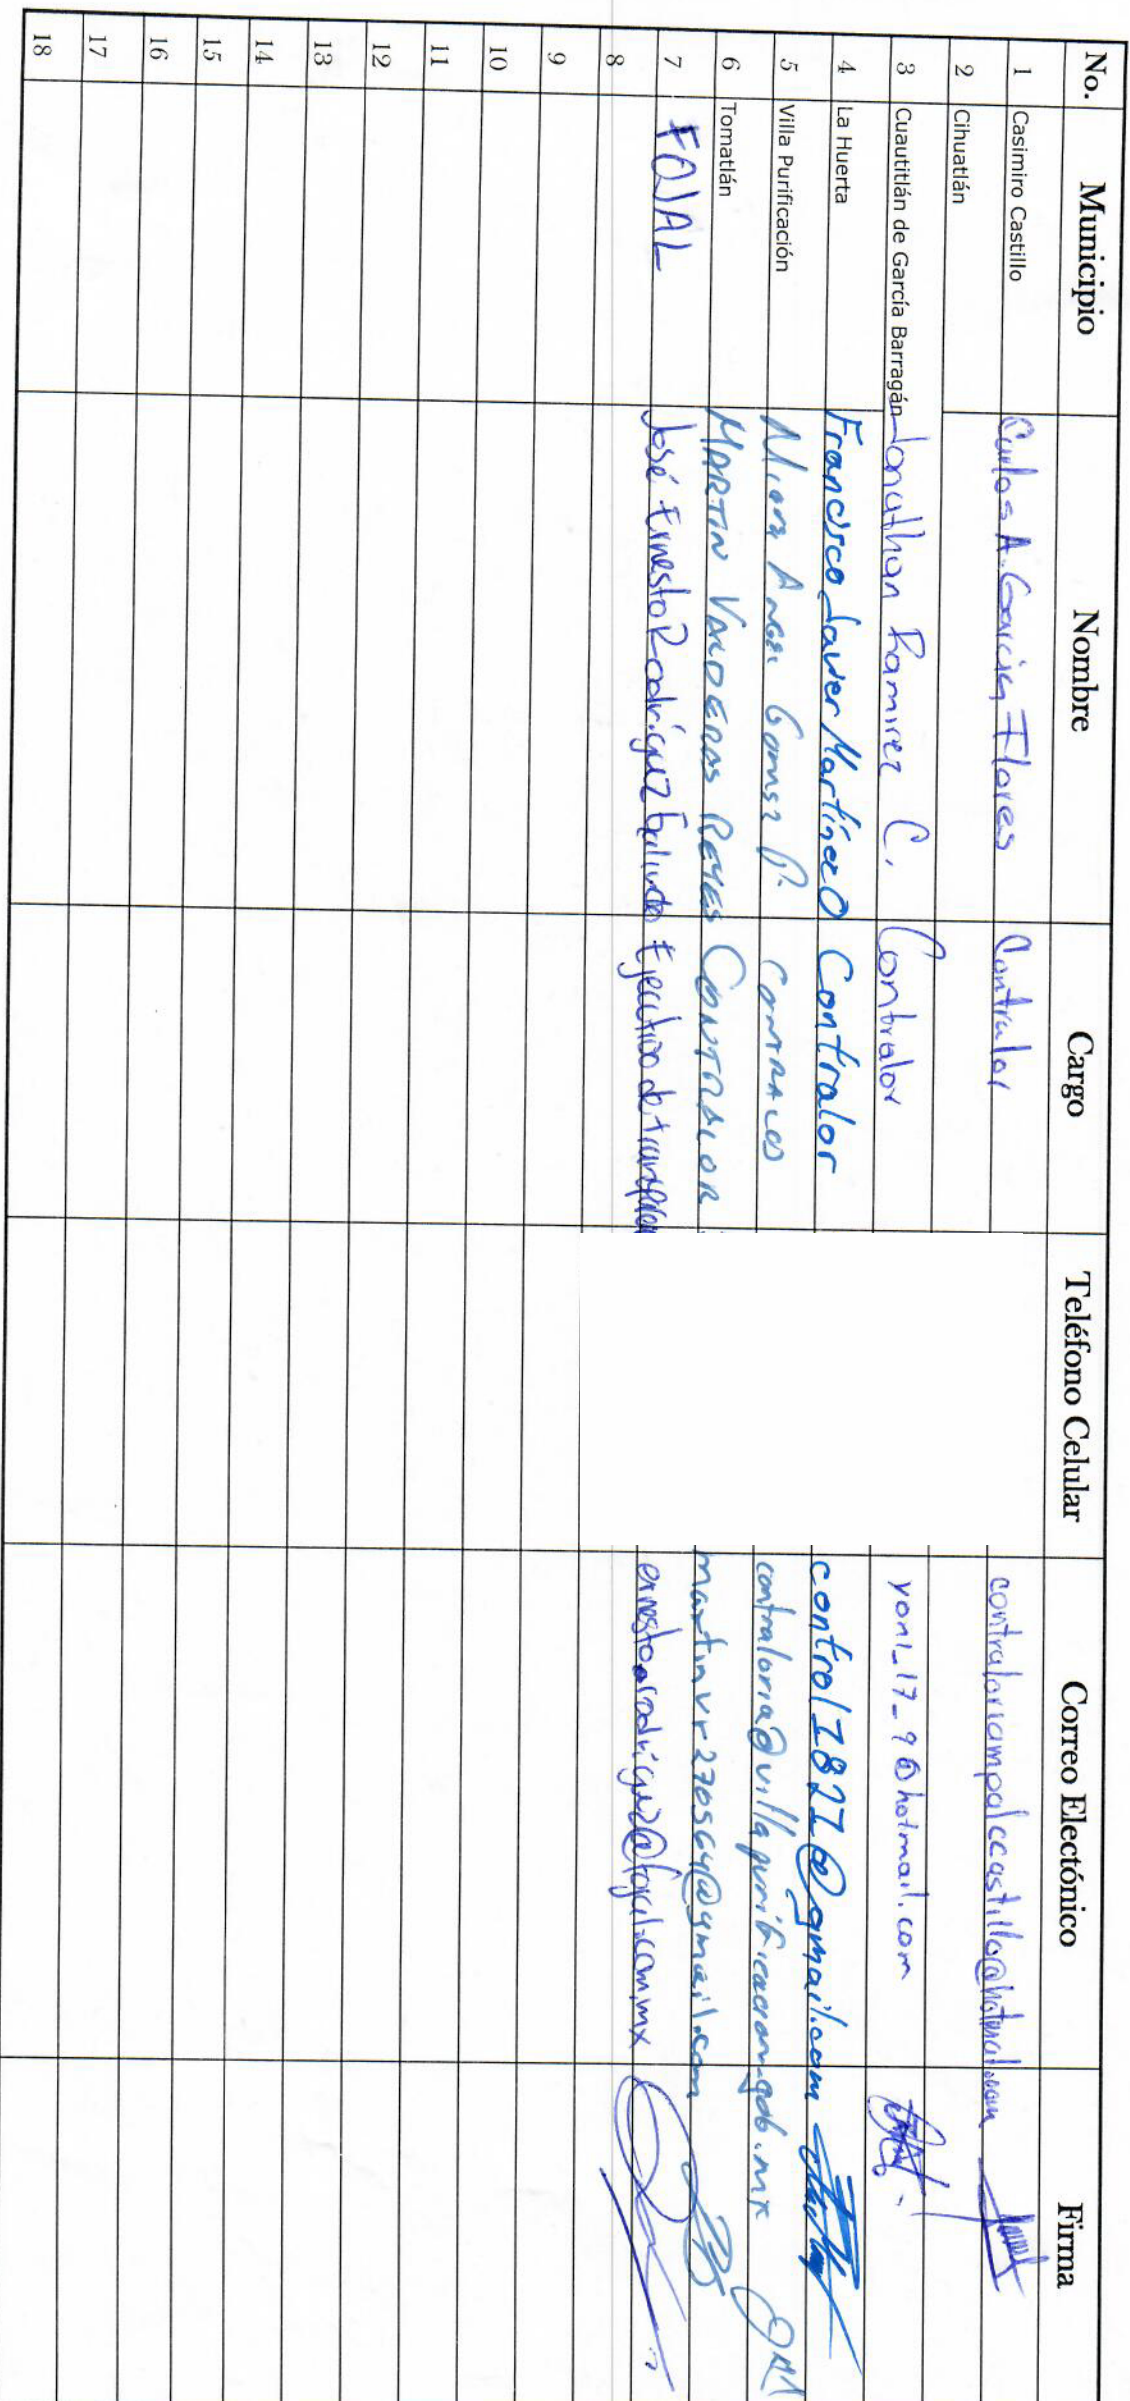 No. Municipio Nombre Cargo Teléfono Celular Correo Electónico Firma
1 Casimiro Castillo Carlos A. García Flores Contralor contraloriampalccastillo@hotmail.com
2 Cihuatlán
3 Cuautitlán de García Barragán Jonathan Ramirez C. Contralor yoni_17_9@hotmail.com
4 La Huerta Francisco Javier Martínez O Contralor control1821@gmail.com
5 Villa Purificación Angel Gomez P. Contralor contraloria@villapurificacion.gob.mx
6 Tomatlán MARTIN VALDERAS REYES CONTRALOR martinvr270564@gmail.com
7 FOJAL José Ernesto Rodríguez Galindo Ejecutivo de ernesto.rodriguez@fojal.com.mx
8
9
10
11
12
13
14
15
16
17
18